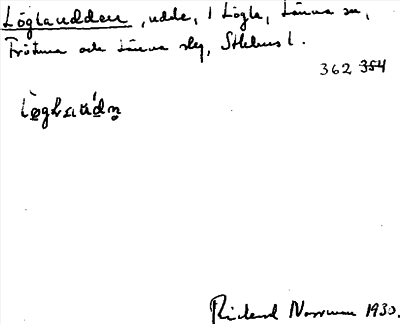 Löglaudden, udde, i Lögla, Länna sn,
Frötuna och Länna sklg, Sthlms l.
362 354
Rickard Norrman 1930.